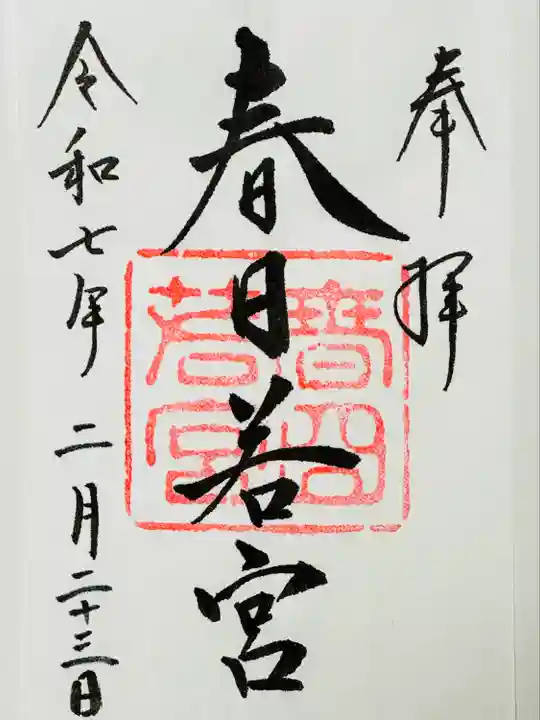 奉拝
春日若宮
春日若宮
令和七年 二月二十三日